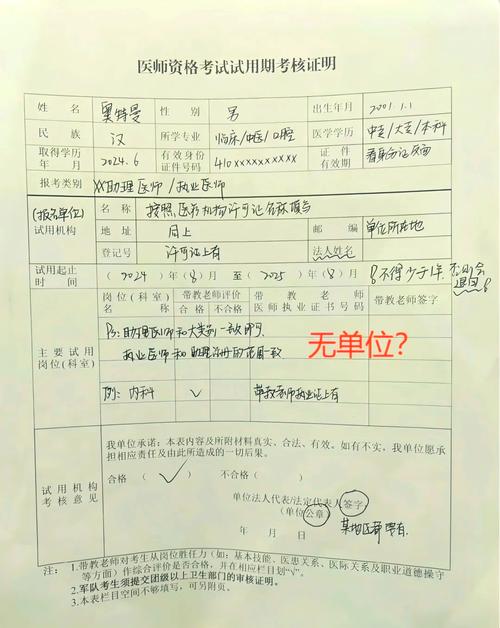 医师资格考试试用期考核证明
姓名 奥特曼 性别 男 出生年月 2001.1.1
民族 汉 所学专业 临床/中医/口腔 医学学历 中专/大专/本科
取得学历年月 2024.6 有效身份证件号码 410xxxxxxxxxxx 证件有效期 看身份证反面
报考类别 XX助理医师/执业医师
(报名单位)
试用机构 名称 按照医疗机构许可证名称填写
地址 同上 邮编 单位所在地
登记号 许可证上有 法人姓名
试用起止时间 (2024)年(8)月 至 (2025)年(8)月 不得少于1年,否则会退回
主要试用岗位(科室) 岗位(科室)名称 带教老师评价 合格 不合格 带教老师医师执业证书号码 带教老师签字
Ps:助理医师和大类别一致即可
执业医师和助理注册的范围一致
无单位?
例:内科 √ 带教老师执业证上有
试用机构考核意见
我单位承诺:本表内容及所附材料真实、合法、有效。如有不实,我单位愿承
担相应责任及由此所造成的一切后果。
合格(√) 不合格( )
单位法人代表/法定代表人签字
(单位公章)
年 月 日
某地区都要有.
注:1.带教老师对考生从岗位胜任力(如:基本技能、医患关系、医际关系及职业道德操守
等方面)作综合评价是否合格,并在相应栏目划“√”。
2.军队考生须提交团级以上卫生部门的审核证明。
3.本表栏目空间不够填写,可另附页。